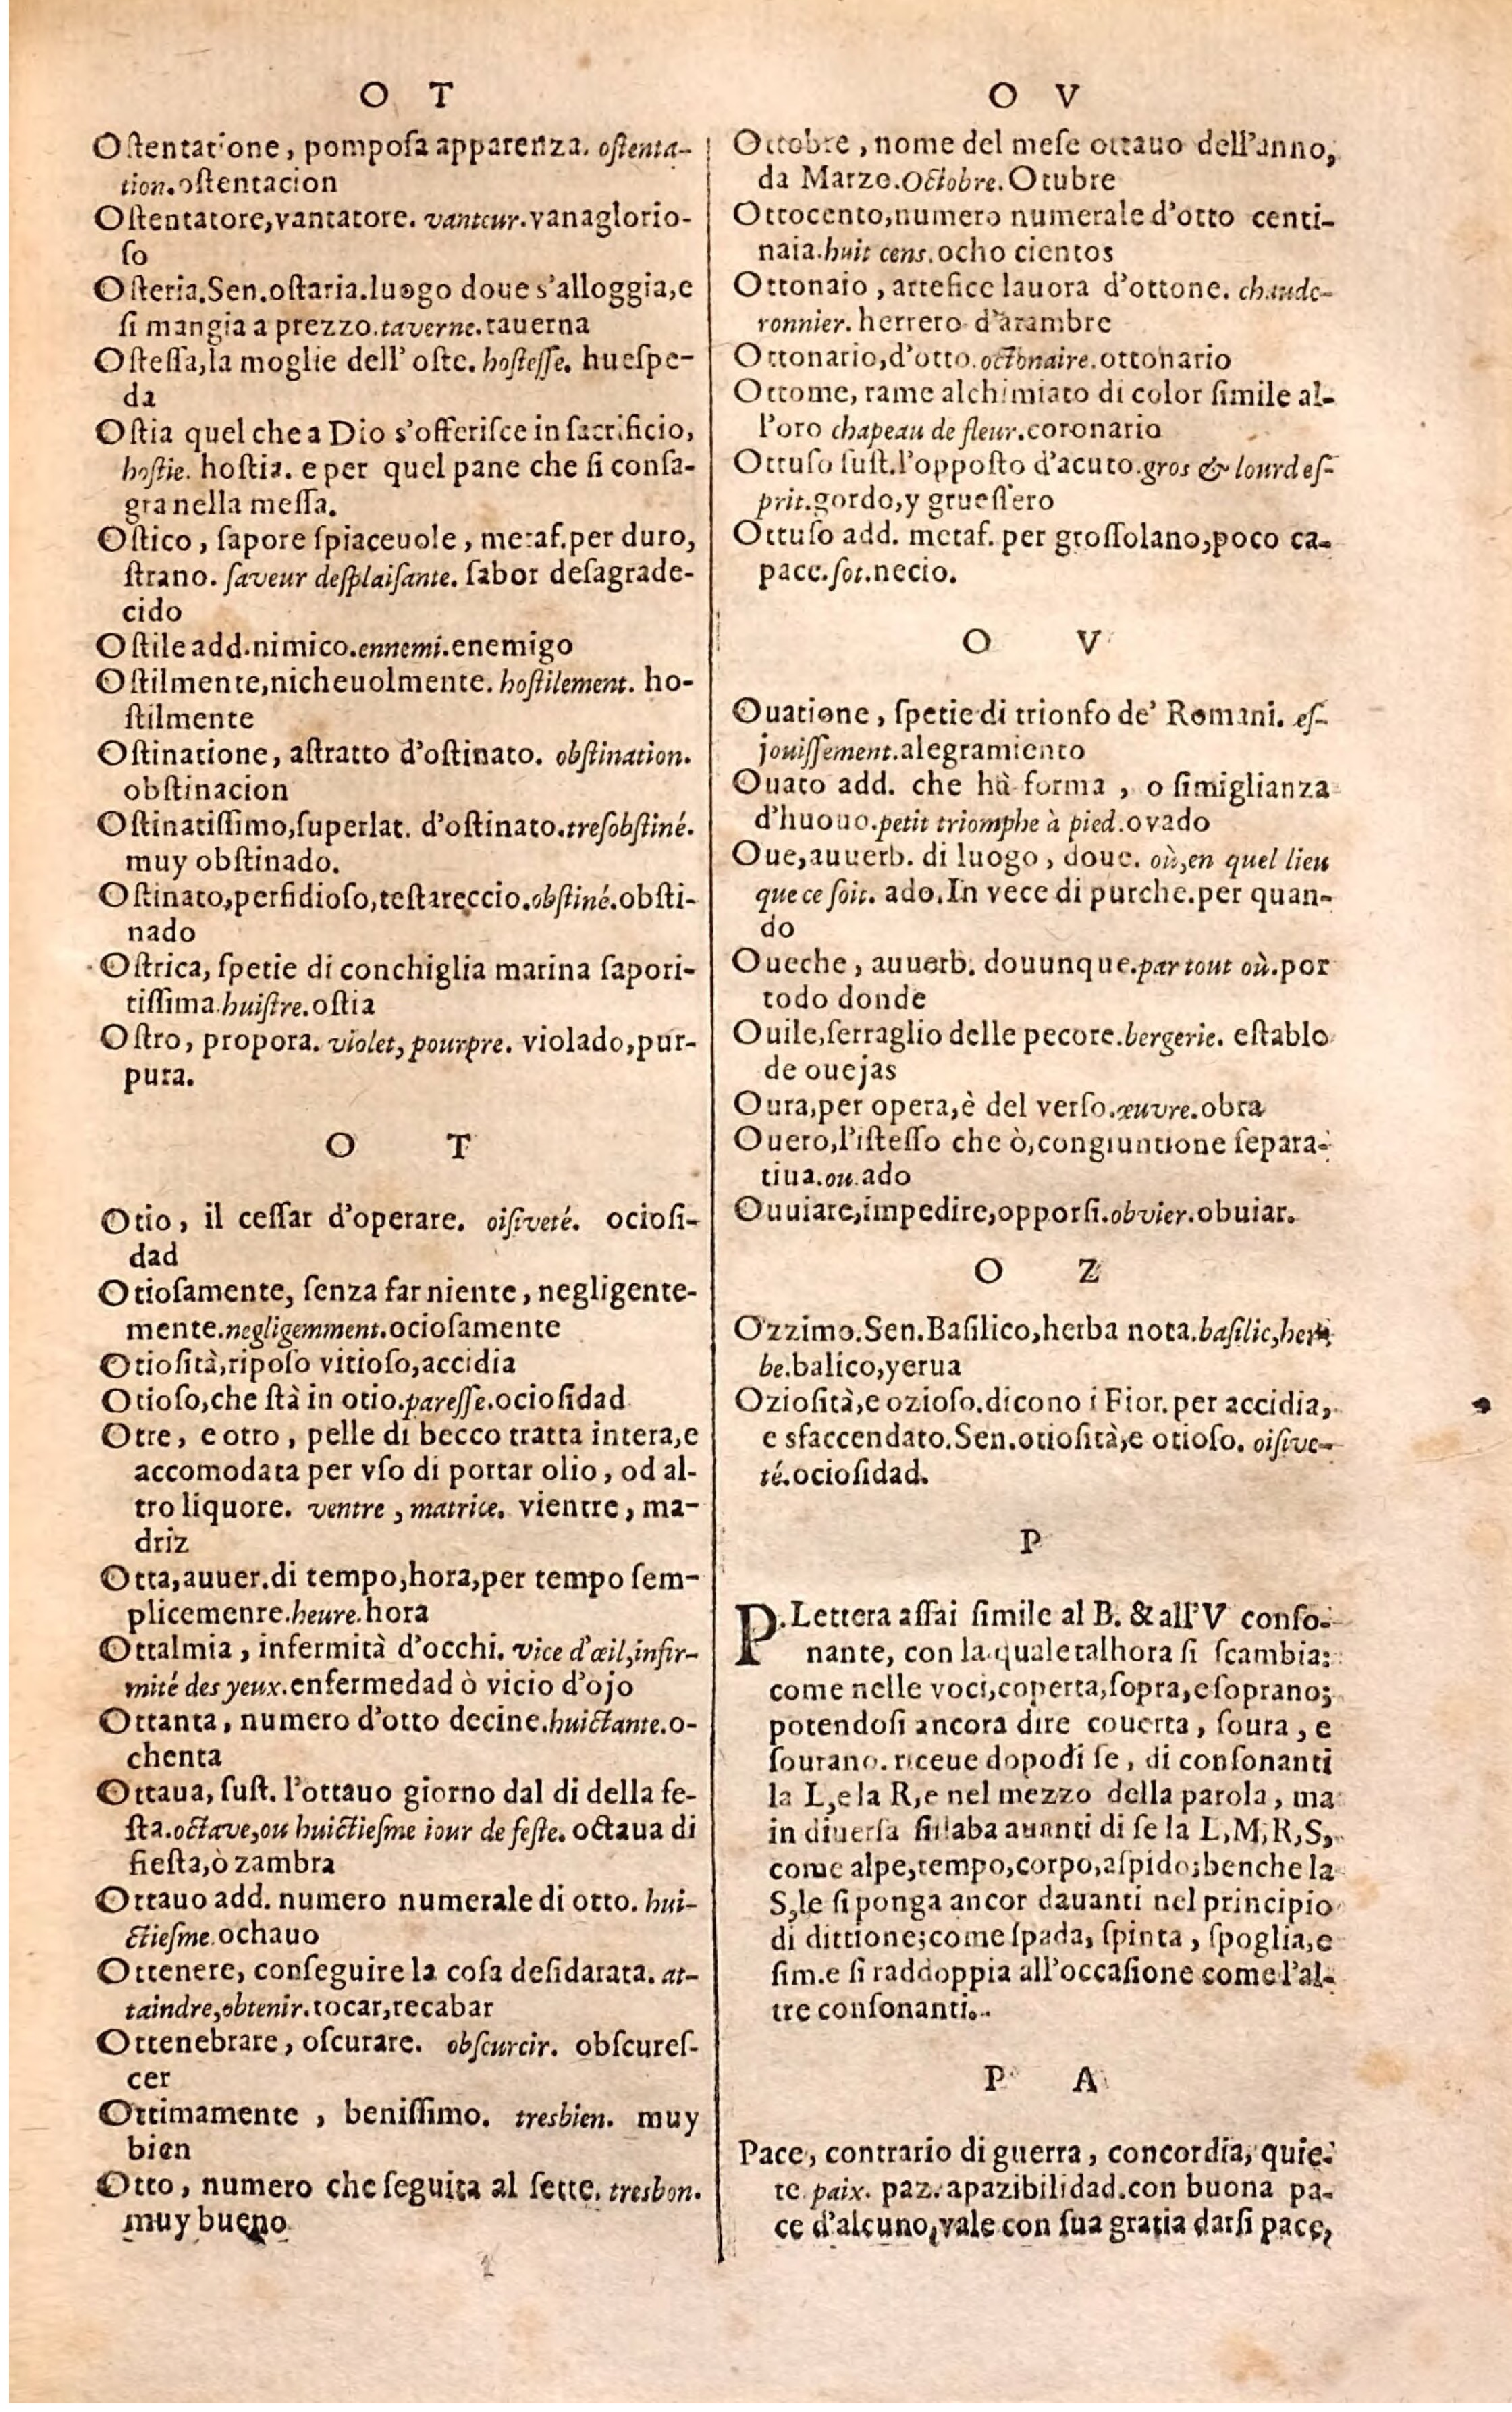 O T
Oſtentatione, pompoſa apparenza. oſtenta-
tion. oſtentacion
Oſtentatore, vantatore. vanteur. vanaglorio-
ſo
Oſteria. Sen. oſtaria. luogo doue s'alloggia, e
ſi mangia a prezzo. taverne. tauerna
Oſteſſa, la moglie dell' oſte. hoſteſſe. hueſpe-
da
Oſtia quel che a Dio s'offeriſce in ſacrificio,
hoſtie. hoſtia. e per quel pane che ſi conſa-
gra nella meſſa.
Oſtico, ſapore ſpiaceuole, metaf. per duro,
ſtrano. ſaveur deſplaiſante. ſabor deſagrade-
cido
Oſtile add. nimico. ennemi. enemigo
Oſtilmente, nicheuolmente. hoſtilement. ho-
ſtilmente
Oſtinatione, aſtratto d'oſtinato. obſtination.
obſtinacion
Oſtinatiſſimo, ſuperlat. d'oſtinato. treſobſtiné.
muy obſtinado.
Oſtinato, perfidioſo, teſtareccio. obſtiné. obſti-
nado
Oſtrica, ſpetie di conchiglia marina ſapori-
tiſſima. huiſtre. oſtia
Oſtro, propora. violet, pourpre. violado, pur-
pura.
O T
Otio, il ceſſar d'operare. oiſiveté. ocioſi-
dad
Otioſamente, ſenza far niente, negligente-
mente. negligemment. ocioſamente
Otioſità, ripoſo vitioſo, accidia
Otioſo, che ſtà in otio. pareſſe. ocioſidad
Otre, e otro, pelle di becco tratta intera, e
accomodata per vſo di portar olio, od al-
tro liquore. ventre, matrice. vientre, ma-
driz
Otta, auuer. di tempo, hora, per tempo ſem-
plicemenre. heure. hora
Ottalmia, infermità d'occhi. vice d'œil, infir-
mité des yeux. enfermedad ò vicio d'ojo
Ottanta, numero d'otto decine. huictante. o-
chenta
Ottaua, ſuſt. l'ottauo giorno dal di della fe-
ſta. octave, ou huictieſme iour de feſte. octaua di
fieſta, ò zambra
Ottauo add. numero numerale di otto. hui-
ctieſme. ochauo
Ottenere, conſeguire la coſa deſidarata. at-
taindre, obtenir. tocar, recabar
Ottenebrare, oſcurare. obſcurcir. obſcureſ-
cer
Ottimamente, beniſſimo. tresbien. muy
bien
Otto, numero che ſeguita al ſette. tresbon.
muy bueno
O V
Ottobre, nome del meſe ottauo dell'anno,
da Marzo. Octobre. Otubre
Ottocento, numero numerale d'otto centi-
naia. huit cens. ocho cientos
Ottonaio, artefice lauora d'ottone. chaude-
ronnier. herrero d'arambre
Ottonario, d'otto. octonaire. ottonario
Ottome, rame alchimiato di color ſimile al-
l'oro chapeau de fleur. coronario
Ottuſo ſuſt. l'oppoſto d'acuto. gros & lourd eſ-
prit. gordo, y grueſſero
Ottuſo add. metaf. per groſſolano, poco ca-
pace. ſot. necio.
O V
Ouatione, ſpetie di trionfo de' Romani. eſ-
jouiſſement. alegramiento
Ouato add. che hà forma, o ſimiglianza
d'huouo. petit triomphe à pied. ovado
Oue, auuerb. di luogo, doue. où, en quel lieu
que ce ſoit. ado. In vece di purche. per quan-
do
Oueche, auuerb. douunque. par tout où. por
todo donde
Ouile, ſerraglio delle pecore. bergerie. eſtablo
de ouejas
Oura, per opera, è del verſo. œuvre. obra
Ouero, l'iſteſſo che ò, congiuntione ſepara-
tiua. ou. ado
Ouuiare, impedire, opporſi. obvier. obuiar.
O Z
Ozzimo. Sen. Baſilico, herba nota. baſilic, her-
be. balico, yerua
Ozioſità, e ozioſo. dicono i Fior. per accidia,
e sfaccendato. Sen. otioſità, e otioſo. oiſive-
té. ocioſidad.
P
P. Lettera aſſai ſimile al B. & all'V conſo-
nante, con la quale talhora ſi ſcambia:
come nelle voci, coperta, ſopra, e ſoprano;
potendoſi ancora dire couerta, ſoura, e
ſourano. riceue dopo di ſe, di conſonanti
la L, e la R, e nel mezzo della parola, ma
in diuerſa ſillaba auanti di ſe la L, M, R, S,
come alpe, tempo, corpo, aſpido; benche la
S, le ſi ponga ancor dauanti nel principio
di dittione; come ſpada, ſpinta, ſpoglia, e
ſim. e ſi raddoppia all'occaſione come l'al-
tre conſonanti.
P A
Pace, contrario di guerra, concordia, quie-
te. paix. paz. apazibilidad. con buona pa-
ce d'alcuno, vale con ſua gratia darſi pace,